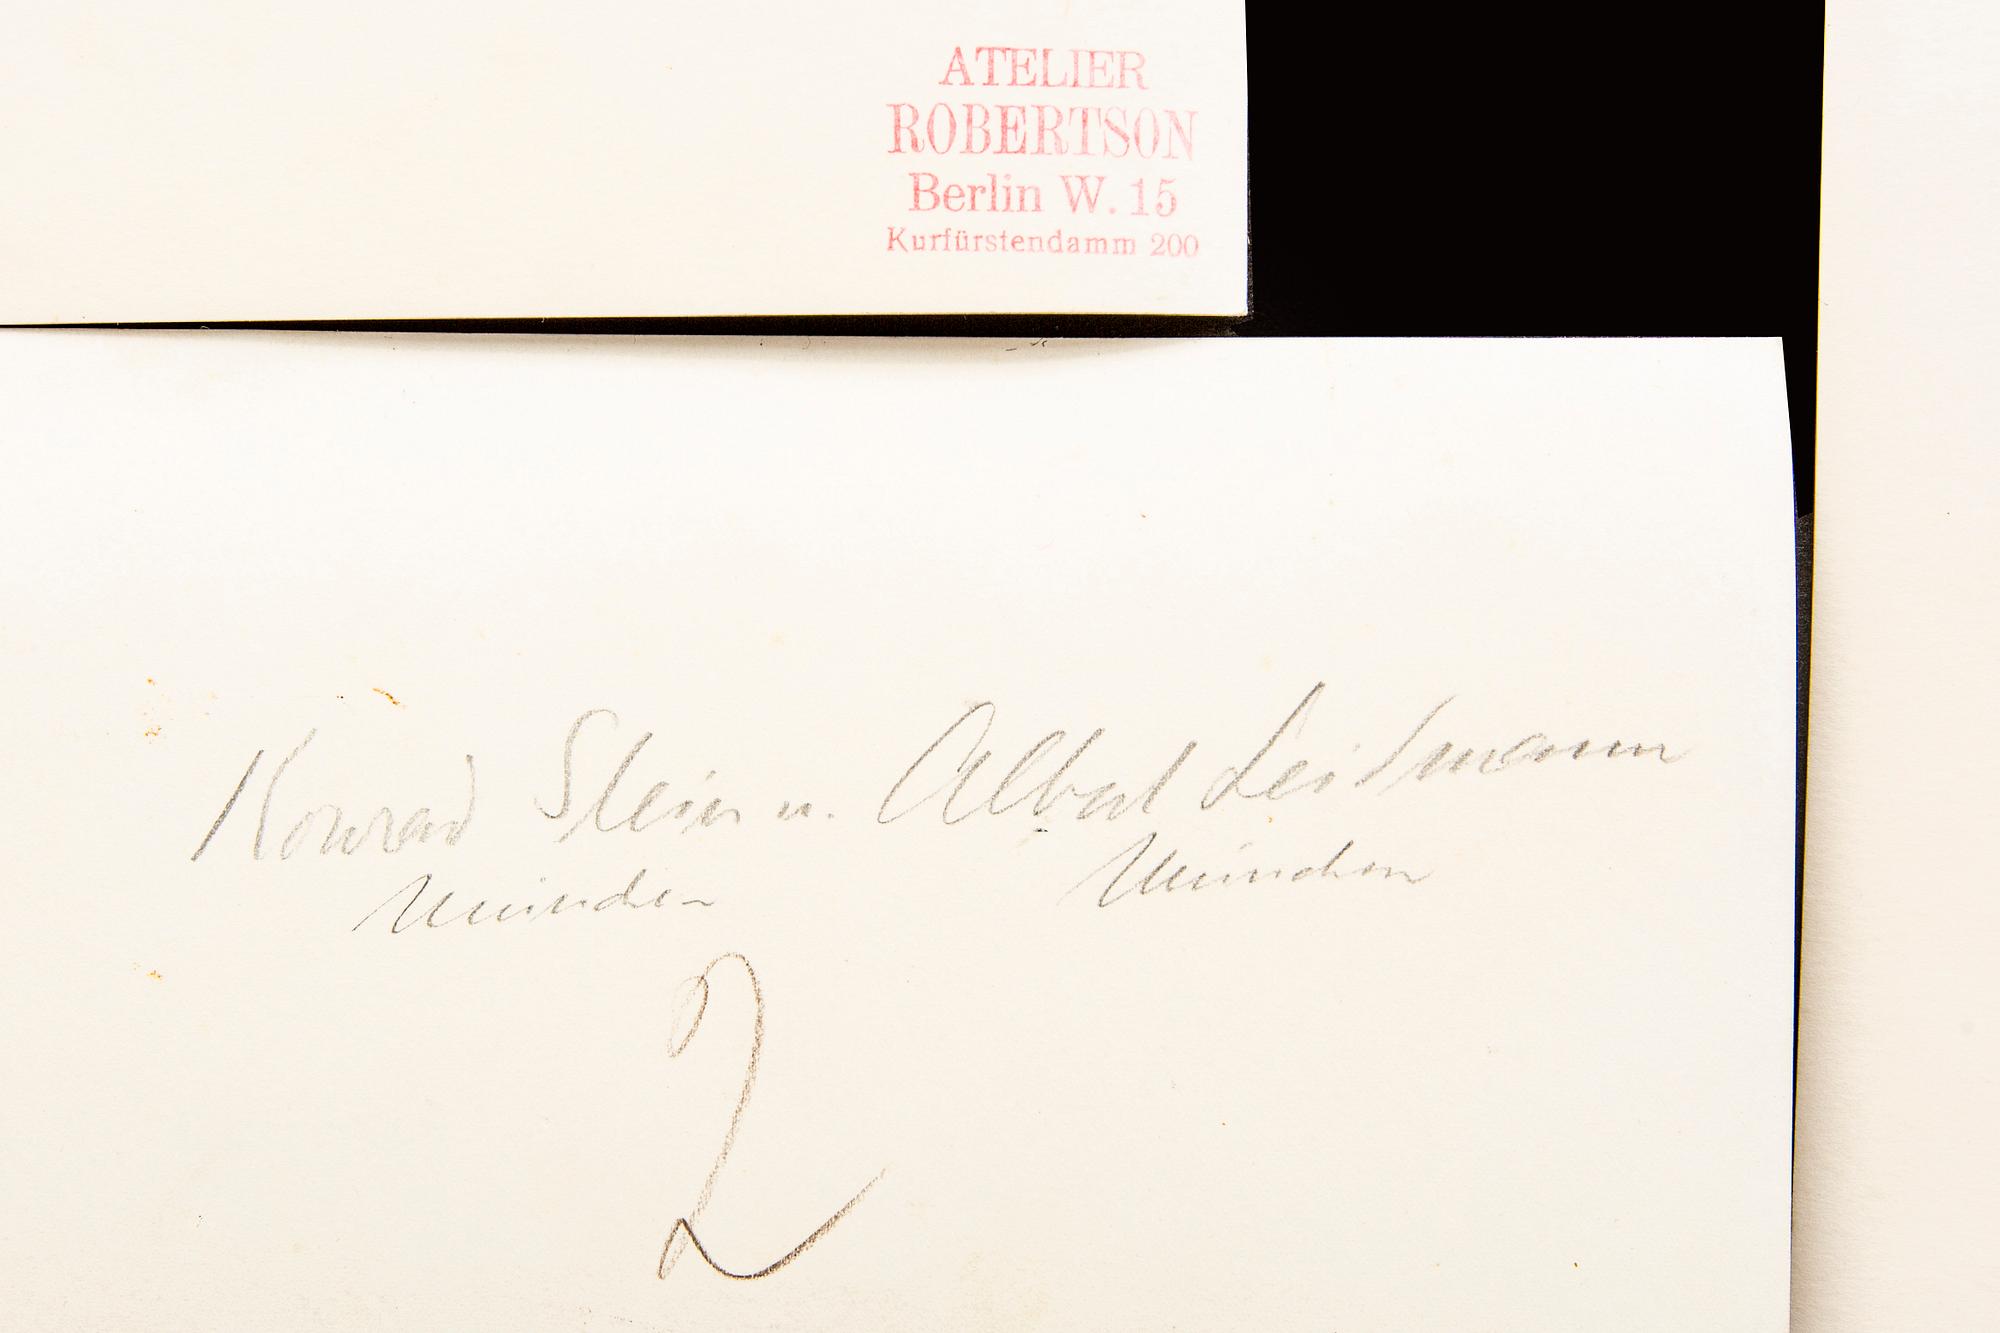 ATELIER
ROBERTSON
Berlin W. 15
Kurfürstendamm 200
Konrad Stein u. Albert Leitmann
München München
2